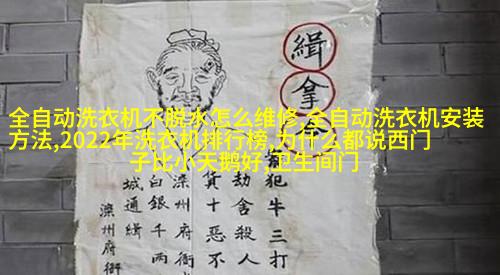 全自动洗衣机不脱水怎么维修,全自动洗衣机安装
方法,2022年洗衣机排行榜,为什么都说西门
子比小天鹅好,卫生间门
緝拿
犯牛三打
劫舍殺人
貨十惡不
滦州府衙
白銀千兩
城通緝
滦州府衙